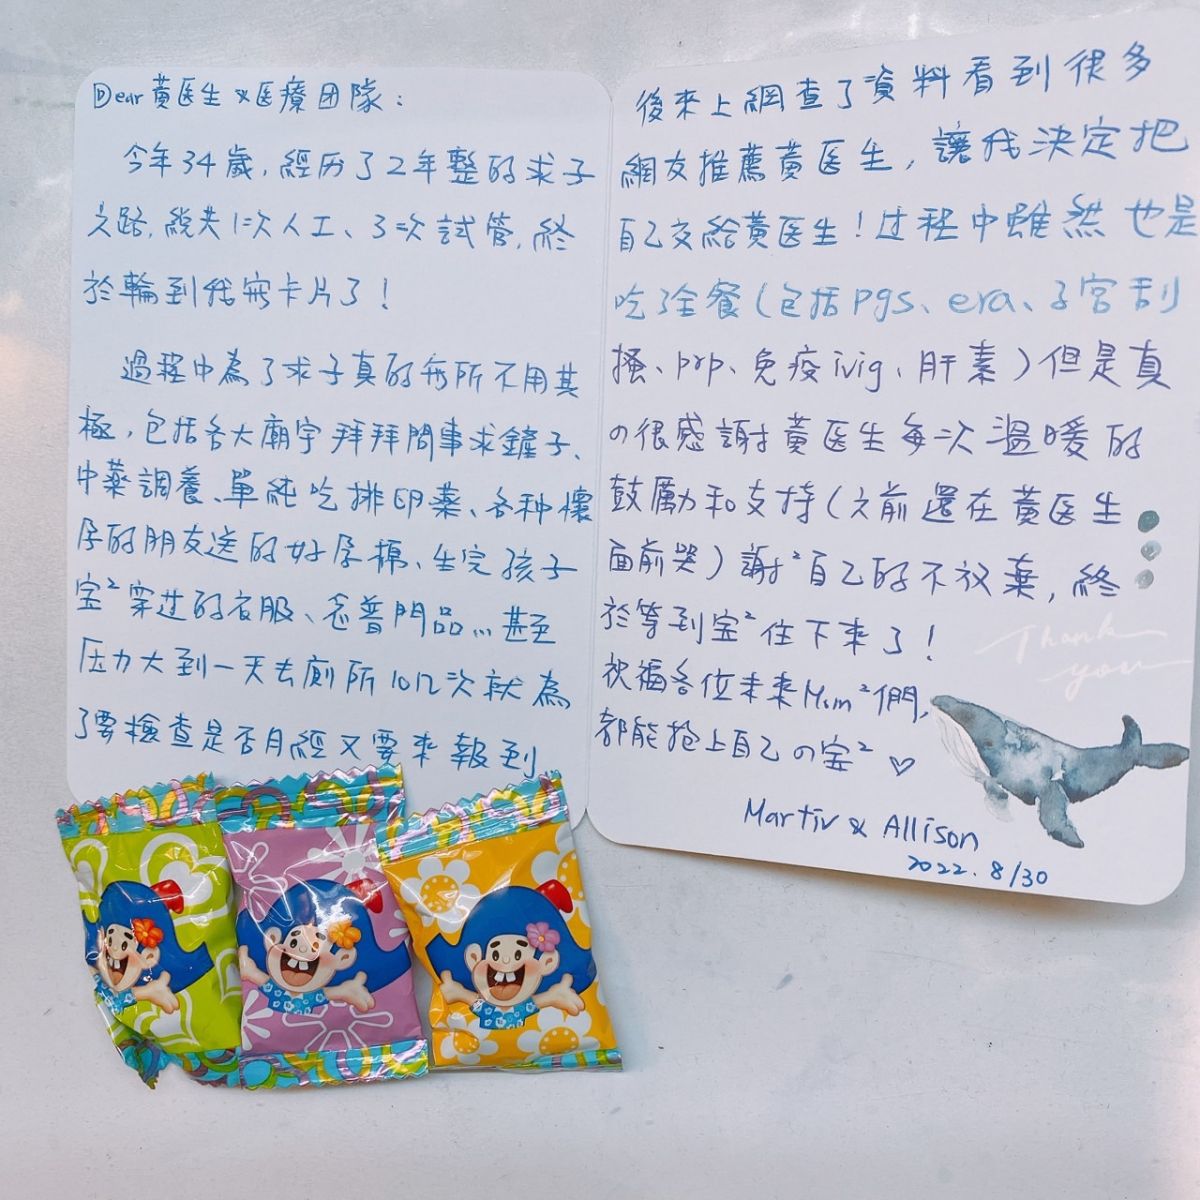 Dear 黃医生 & 医療团隊：
今年34歲，經历了2年整的求子
之路，經失1次人工、3次試管，終
於輪到我寫卡片了！
過程中為了求子真的無所不用其
極，包括各大廟宇拜拜問事求鏟子、
中藥調養、單純吃排卵藥、各种懷
孕的朋友送的好孕棉、生完孩子
宝²穿过的衣服、念普門品…甚至
压力大到一天去廁所10几次就為
了要檢查是否月經又要來報到
後來上網查了資料看到很多
網友推薦黃医生，讓我決定把
自己交給黃医生！过程中雖然也是
吃了全餐（包括pgs、era、子宮刮
搔、prp、免疫ivig、肝素）但是真
の很感謝黃医生每次溫暖的
鼓勵和支持（之前還在黃医生
面前哭）謝²自己的不放棄，終
於等到宝²住下來了！
祝福各位未來Mom²們，
都能抱上自己の宝²♡
Thank
you
Martiv & Allison
2022. 8/30